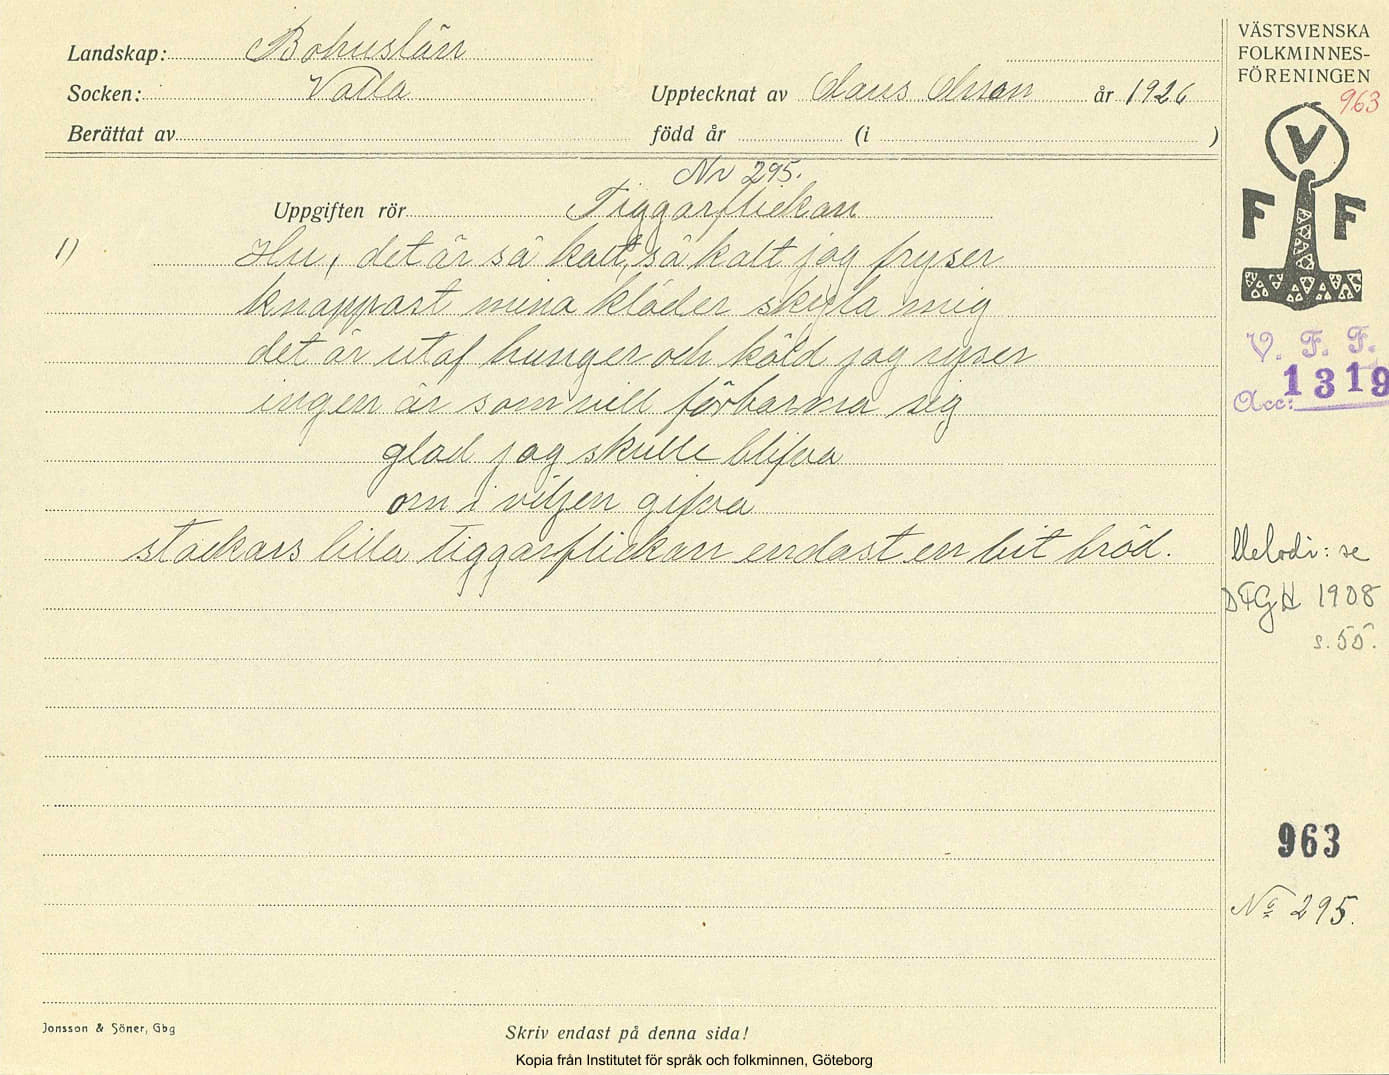 Landskap: Bohuslän
Socken: Valla
Upptecknat av Claus Olsson år 1926
Berättat av
född år (i )
Nr 295.
Uppgiften rör Tiggarflickan
1) Hu, det är så kallt, så kalt jag fryser
knappast mina kläder skyla mig
det är utaf hunger och köld jag ryser
ingen är som vill förbarma sig
glad jag skulle blifva
om i viljen gifva
stackars lilla tiggarflickan endast en bit bröd.
VÄSTSVENSKA
FOLKMINNES-
FÖRENINGEN
963
V
F F
V. F. F.
Acc: 1319
Melodi: se
DFGH 1908
s. 55.
963
No 295.
Jonsson & Söner, Gbg
Skriv endast på denna sida!
Kopia från Institutet för språk och folkminnen, Göteborg